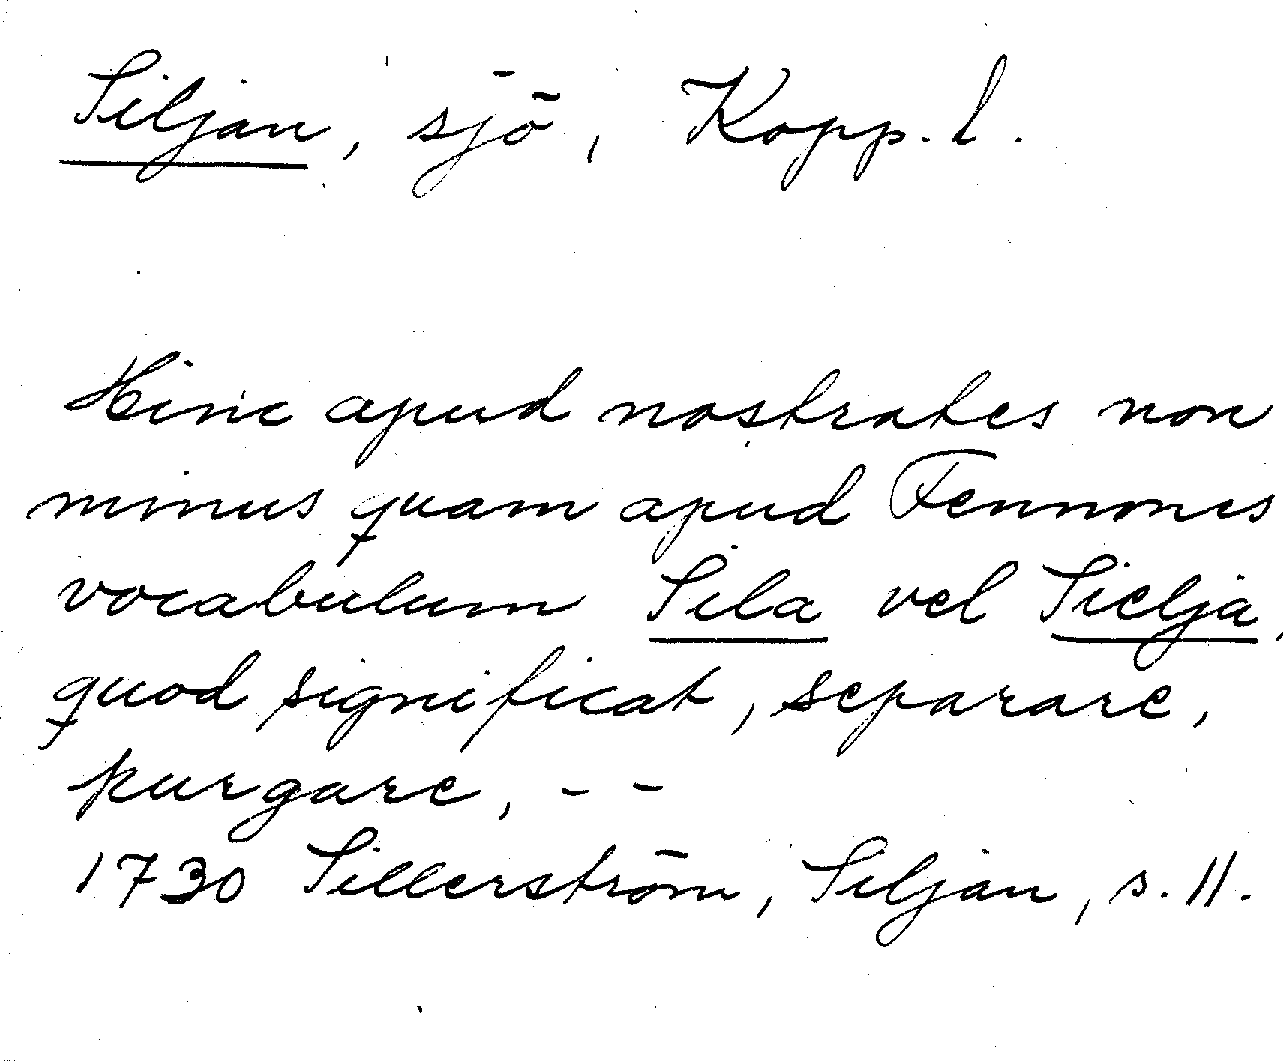 Siljan, sjö, Kopp. l.
Hinc apud nostrates non
minus quam apud Fennones
vocabulum Sila vel Sielja,
quod significat, separare,
purgare, - -
1730 Sillerström, Siljan, s. 11.